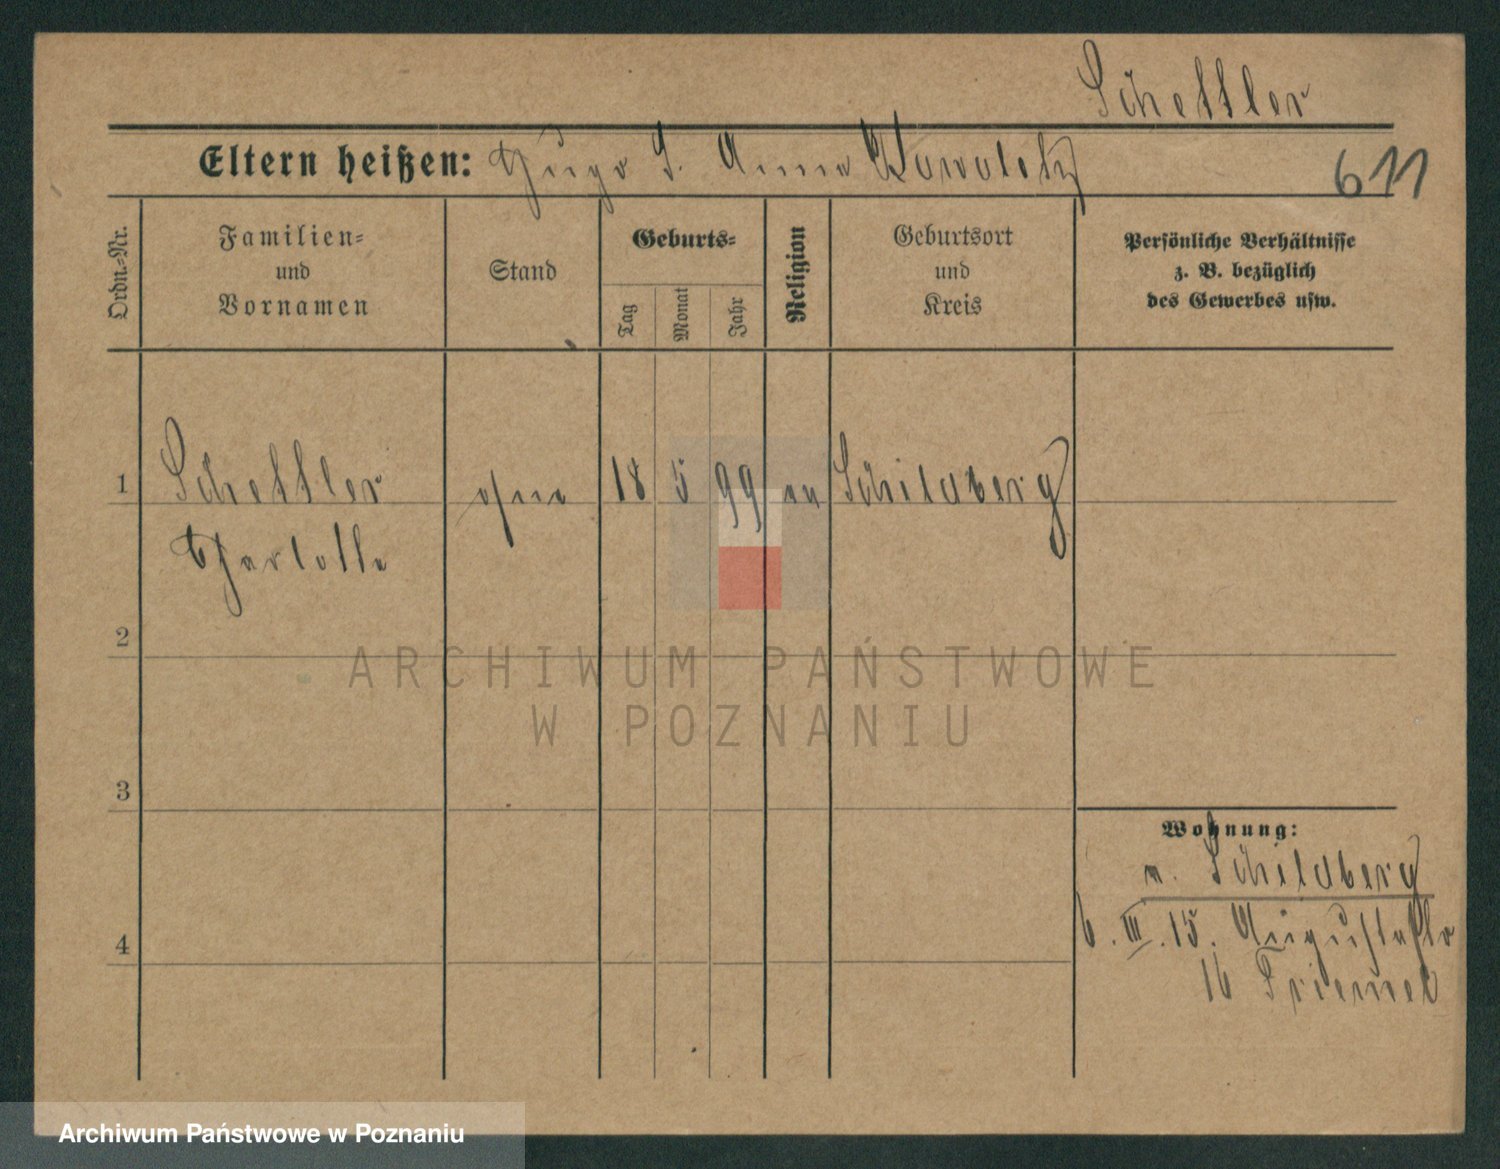 Schettler
Eltern heißen: Hugo S. Anna
611
Ordn.-Nr.
Familien-
und
Vornamen
Stand
Geburts-
Tag
Monat
Jahr
Religion
Geburtsort
und
Kreis
Persönliche Verhältnisse
z. B. bezüglich
des Gewerbes usw.
1 Schettler ohne 18 5 99 ev Schildberg
Charlotte
2
3
4
Wohnung:
v. Schildberg
6. III. 15. Augustastr
16 Triemel
ARCHIWUM PAŃSTWOWE
W POZNANIU
Archiwum Państwowe w Poznaniu